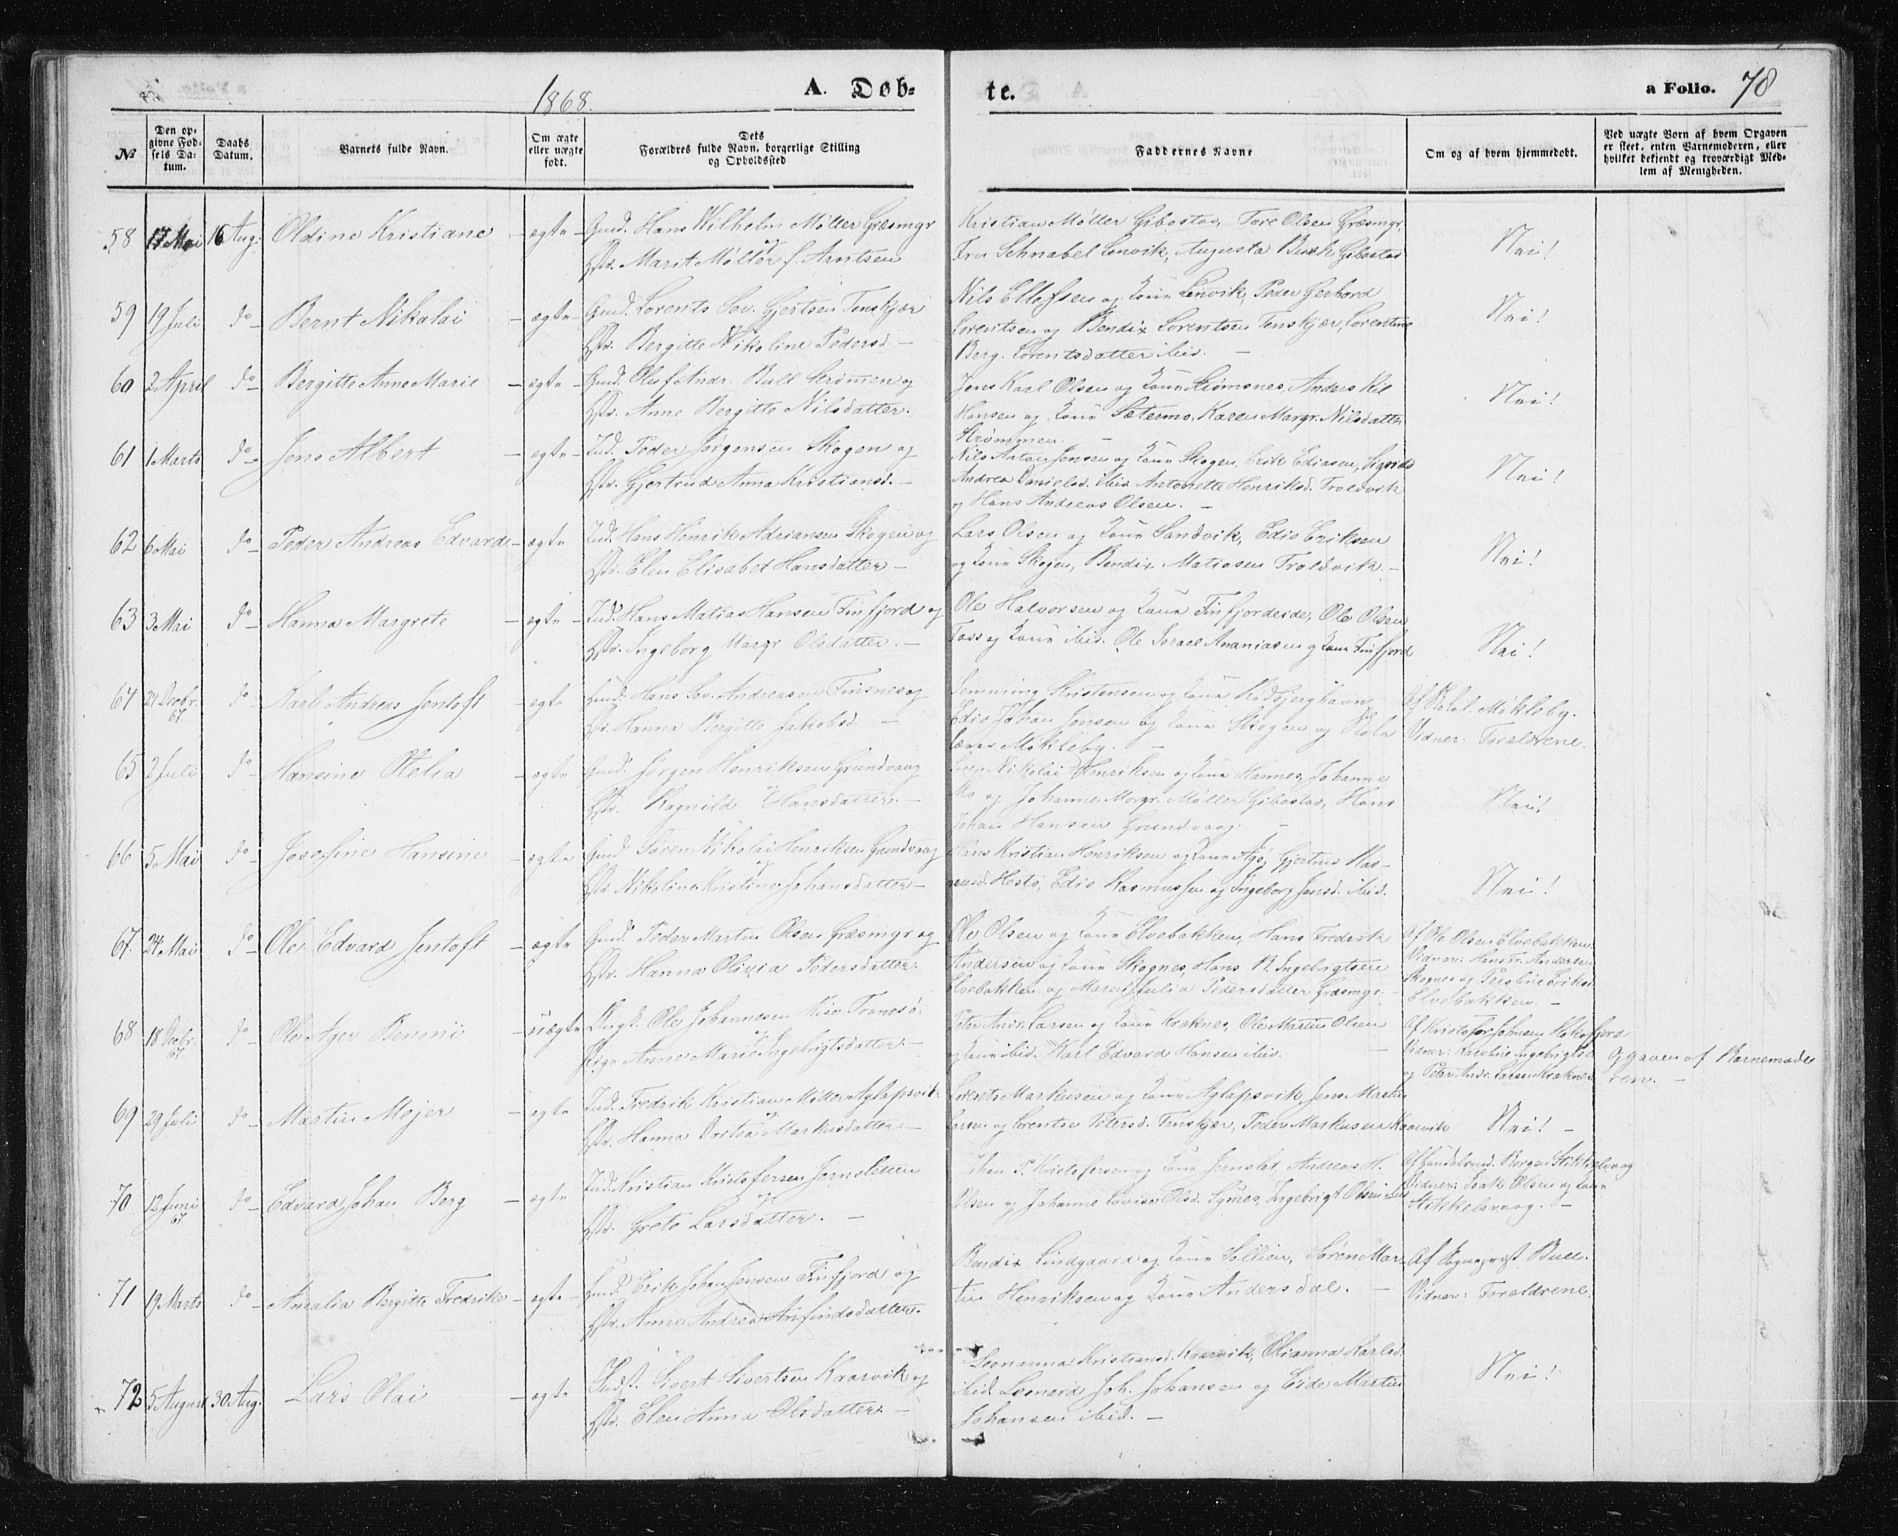 1868.
A. Døb-
te.
a Folio. 78
№
Den opgivne Fødsels Datum.
Daabs Datum.
Barnets fulde Navn.
Om ægte eller uægte født.
Dets Forældres fulde Navn, borgerlige Stilling og Opholdssted
Faddernes Navne
Om og af hvem hjemmedøbt.
Ved uægte Børn af hvem Opgaven er skeet, enten Barnemoderen, eller hvilket bekjendt og troværdigt Medlem af Menigheden.
58 17 Mai 16 Aug. Oldine Kristiane – ægte – Gmd. Hans Wilhelm Møller Græsmyr
Marit Møller f. Arntsen
Kristian Møller Gibostad, Tore Olsen Græsmyr,
Fru Schnabel Lenvik, Augusta Gibostad
Nei!
59 19 Juli do – Bernt Nikolai – ægte – Gmd. Lorents Sør. Gjertsen Tenskjær
Bergitte Nikoline Pedersd. –
Nils Ellefsen og Kone Lenvik, Peder Gerhard
Lorentsen og Bendix Lorentsen Tenskjær, Lorentine
Berg. Lorentsdatter ibid. –
Nei!
60 2 April do – Bergitte Anne Marie – ægte – Gmd. Oluf Andr. Bull Strømmen og
Anne Bergitte Nilsdatter.
Jens Karl Olsen og Kone Strømsnes, Anders
Hansen og Kone Sætermo, Karen Margr. Nilsdatter
Strømmen. –
Nei!
61 1 Marts do – Jens Albert – ægte – Ind. Peder Jørgensen Skogen og
Gjertrud Anna Kristiansd. –
Nils Anton Jensen og Kone Skogen, Erik Ediasen,
Andrea Danielsd. ibid. Antonette Henriksd. Troldvik
og Hans Andreas Olsen. –
Nei!
62 6 Mai do – Peder Andreas Edvard – ægte – Ind. Hans Henrik Adriansen Skogen og
Elen Elisabet Hansdatter –
Lars Olsen og Kone Sandvik, Edis Eriksen
og Kone Skogen, Bendix Matiasen Troldvik. –
Nei!
63 3 Mai do – Hanna Margrete – ægte – Ind. Hans Matias Hansen Finfjord og
Ingeborg Margr. Olsdatter. –
Ole Halvorsen og Kone Finfjordeide, Ole Olsen
Foss og Kone ibid. Ole Israel Ananiasen og Kone Finfjord
Nei!
64 21 Decbr. 67 do Karl Andreas Jentoft – ægte Gmd. Hans Sør. Andreasen Finsnes og
Hanna Bergitte Jakobsd. –
Hemming Kristensen og Kone Rødbjerghavn,
Edis Johan Jensen og Kone Skogen og Skole
lærer Møkleby. –
Af Skolel. Møkleby.
Vidner: Forældrene.
65 2 Juli do – Hansine Otelia – ægte Gmd. Jørgen Henriksen Grundvaag
Ragnild Hansdatter. –
Søren Nikolai Henriksen og Kone Hannes, Johanne
Mo og Johanne Margr. Møller Gibostad, Hans
Johan Hansen Grundvaag –
Nei!
66 5 Mai do – Josefine Hansine – ægte Gmd. Søren Nikolai Henriksen Grundvaag
Nikoline Kristine Johansdatter –
Hans Kristian Henriksen og Kone Gjertrud Ras-
musd. Hestø, Edis Rasmussen og Ingeborg Jensd. ibid.
Nei!
67. 24 Mai do – Ole Edvard Jentoft – ægte Gmd. Peder Martin Olsen Græsmyr og
Hanna Olivia Pedersdatter.
Ole Olsen og Kone Elvebakken, Hans Fredrik
Andersen og Kone Skognes, Hans N. Ingebrigtsen
Elvebakken og Maren Julia Pedersdatter Græsmyr –
Af Ole Olsen Elvebakken
Vidner: Hans Fr. Andersen
Skognes og Peroline Eriksd.
Elvebakken. –
68 18 Decbr. 67 do Ole Ager Benoni – uægte Ungk. Ole Johannesen Tromsø.
Pige Anne Marie Ingebrigtsdatter. –
Peter Andr. Larsen og Kone Kraknes, Ole Martin Olsen
og Kone ibid. Karl Edvard Hansen ibid. –
Af Kristofer Johnsen
Vidner: Karoline Ingebrigtsd.
og Peter Andr. Larsen Kraknes
Opgaven af Barnemode
ren. –
69 29 Juli do – Martin Mejer – ægte Ind. Fredrik Kristian Aglapsvik
Hanna Markusdatter –
Lorents Markussen og Kone Aglapsvik, Jens Martin
Larsen og Lorentse Petersd. Tenskjær, Peder Markussen Kaarvik
Nei! –
70 12 Juni 67 do – Edvard Johan Berg – ægte Ind. Kristian Kristofersen Jernsletten
Grete Larsdatter. –
Johan P. Kristofersen og Kone Andreas H.
Olsen og Johanne Lovise Olsd. Ingebrigt Olsen ibid
Af Handelsmd. Borgen Stikkelsvaag
Vidner: Isak Olsen og Kone
Stikkelsvaag. –
71 19 Marts do – Amalia Bergitte Fredrikke – ægte – Gmd. Erik Johan Jensen Finfjord og
Anne Andrea Arnfindsdatter.
Bendix Lindgaard og Kone Sollien, Søren Mar-
tin Henriksen og Kone Andersdal. –
Af Sogneprest Bull.
Vidner: Forældrene.
72 5 August 30 Aug. Lars Olai – ægte Sivert Sivertsen Kaarvik og
Elen Anna Olsdatter. –
Leonanna Kristiansd. Kaarvik, Olianna Karlsd.
ibid. Leonard Joh. Johansen og Eide Martin
Johansen ibid. –
Nei!